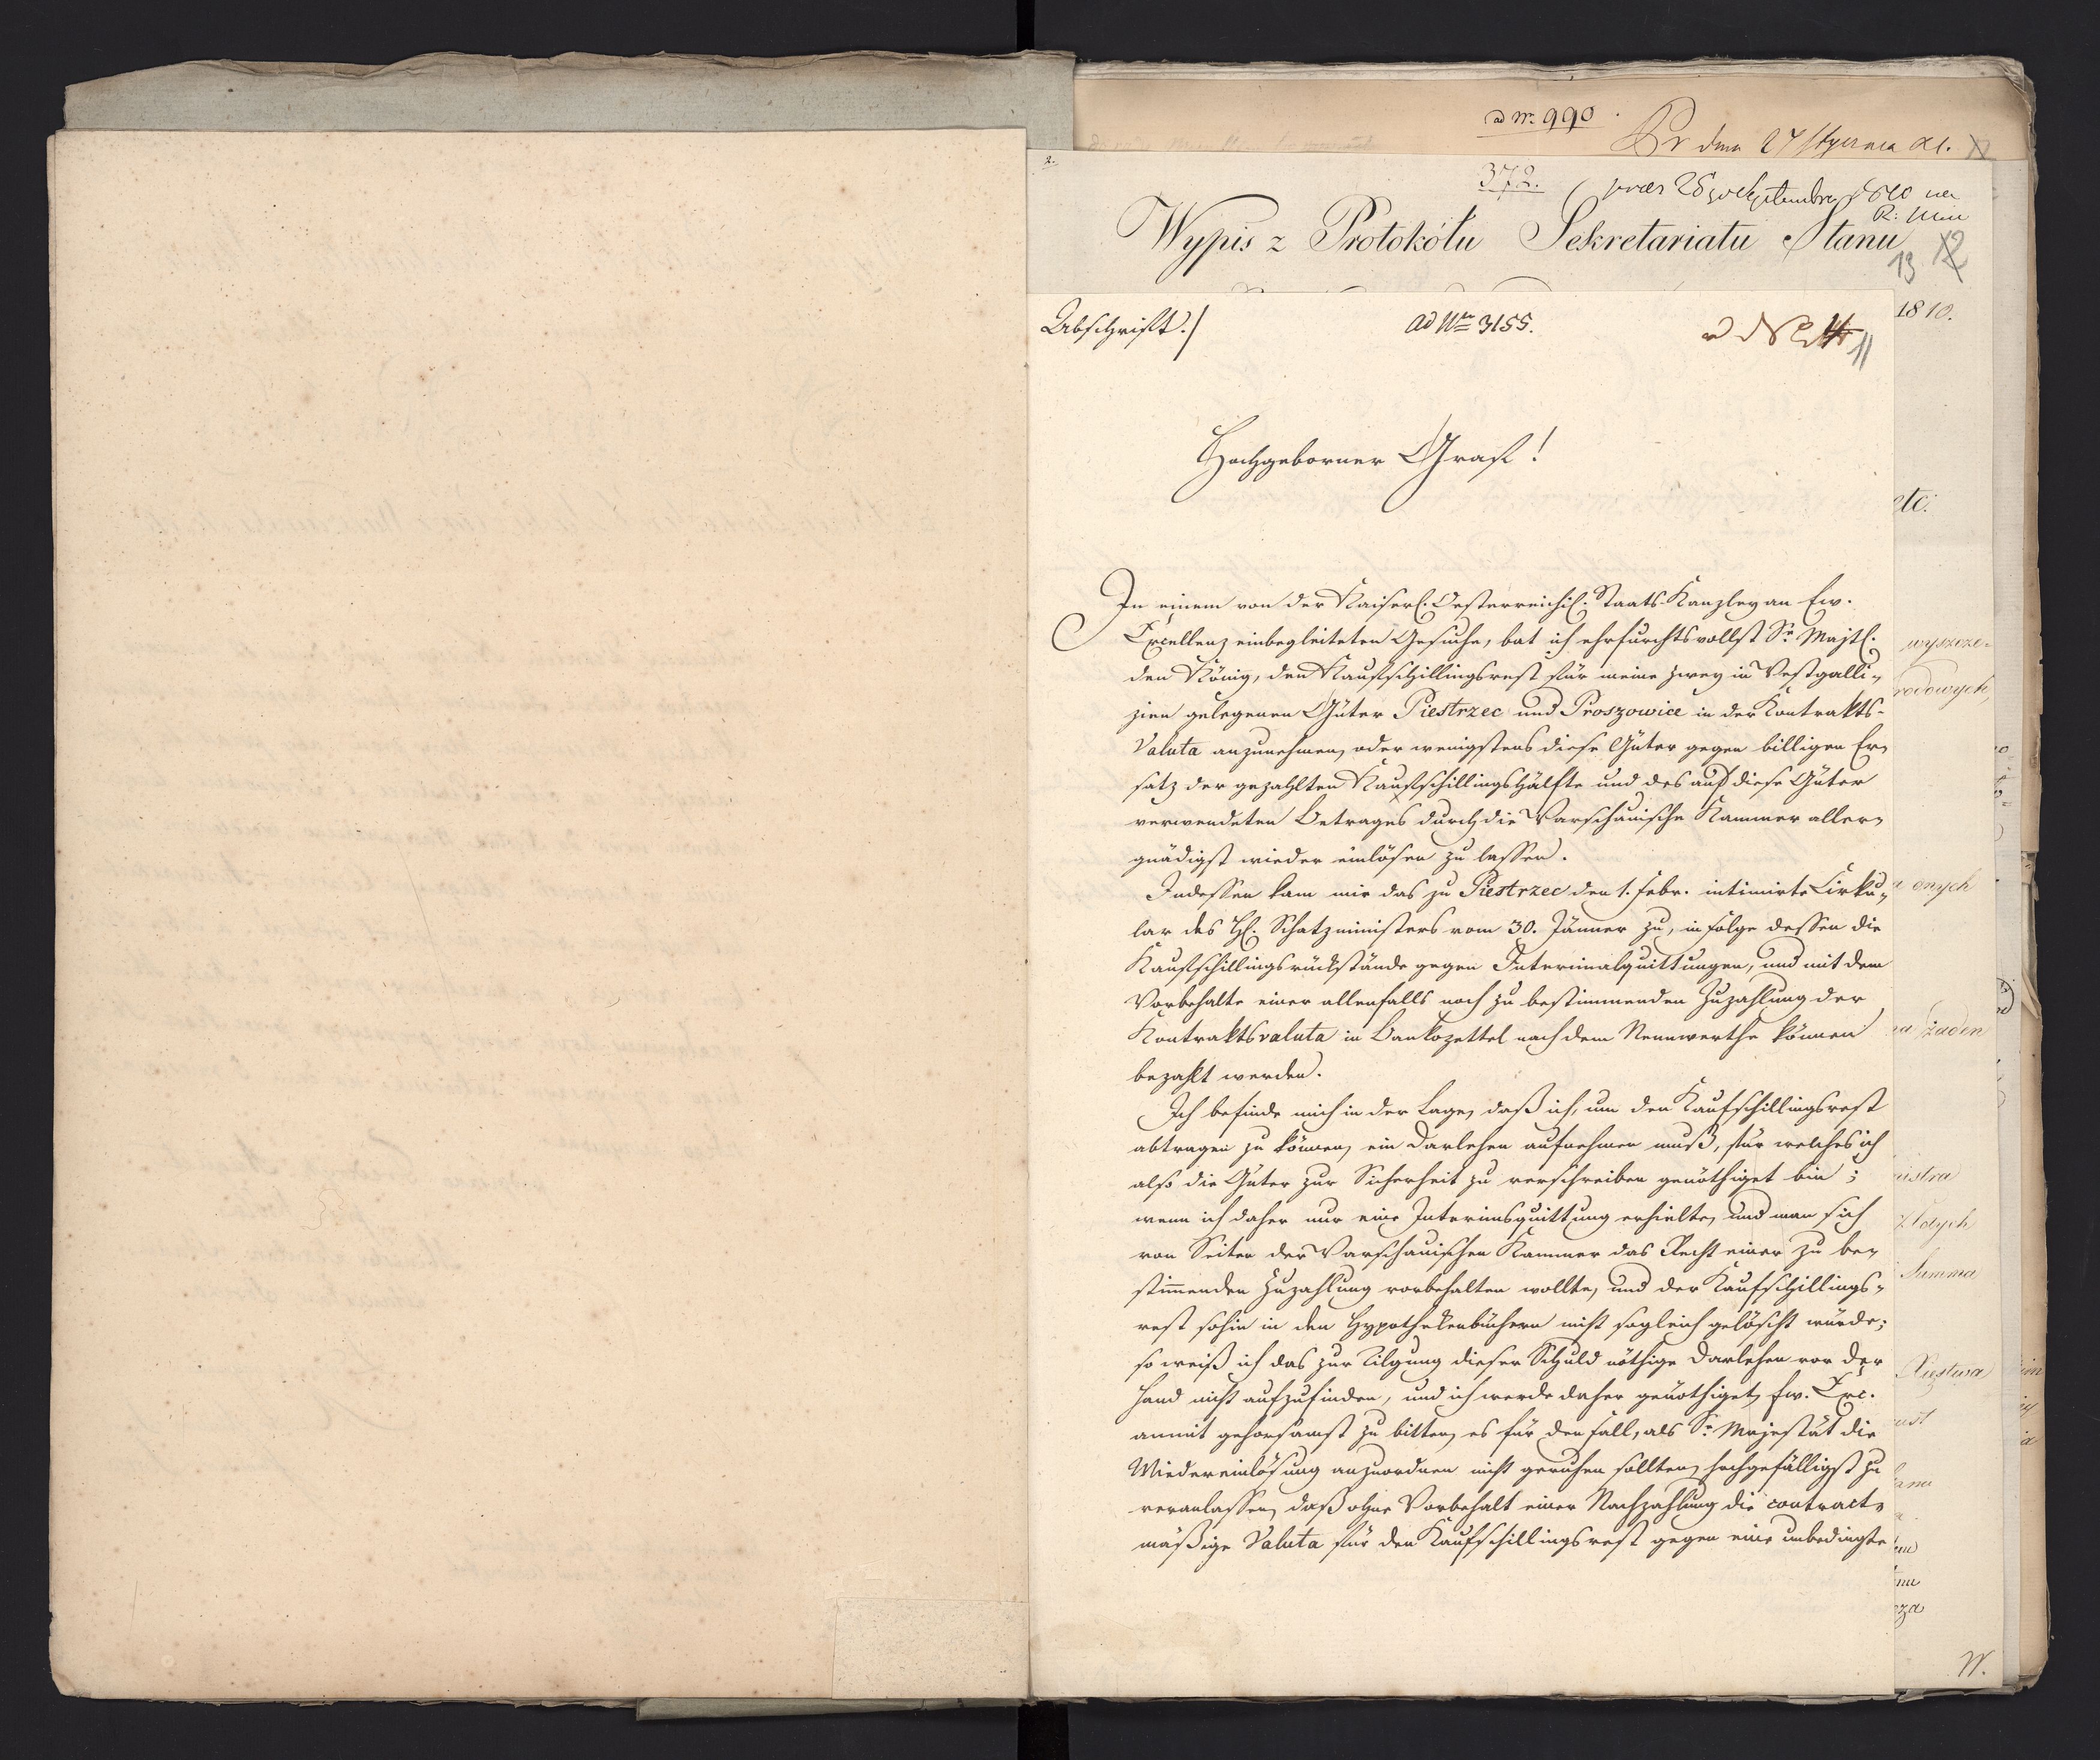 ad Nr. 990
2.
372.
Wypis z Protokołu Sekretariatu Stanu
13 12
1810.
Abschrift./
ad Nro 3155.
11
etc:
Hochgeborner Graf!
In einem von der Kaiserl. Oesterreichl. Staats-Kanzley an Ew.
Excellenz einbegleiteten Gesuche, bat ich ehrfurchtsvollst Sr Majtl.
den König, den Kaufschillingsrest für meine zwey in Westgalli-
zien gelegenen Güter Piestrzec und Proszowice in der Kontrakts-
Valuta anzunehmen, oder wenigstens diese Güter gegen billigen Er-
satz der gezahlten Kaufschillingshälfte und des auf diese Güter
verwendeten Betrages durch die Warschauische Kammer aller-
gnädigst wieder einlösen zu lassen.
Indessen kam mir das zu Piestrzec den 1. Febr. intimirte Cirku-
lar des H. Schatzministers vom 30. Jänner zu, in folge dessen die
Kaufschillingsrückstände gegen Interimalquittungen, und mit dem
Vorbehalte einer allenfalls noch zu bestimmenden Zuzahlung der
Kontraktsvaluta in Bankozettel nach dem Nennwerthe können
bezahlt werden.
Ich befinde mich in der Lage, daß ich, um den Kaufschillingsrest
abtragen zu können, ein Darlehen aufnehmen muß, für welches ich
also die Güter zur Sicherheit zu verschreiben genöthiget bin;
wenn ich daher nur eine Interimsquittung erhielte, und man sich
von Seiten der Warschauischen Kammer das Recht einer zu be-
stimenden Zuzahlung vorbehalten wollte, und der Kaufschillings-
rest sohin in den Hypothekenbüchern nicht sogleich gelöscht würde;
so weiß ich das zur Tilgung dieser Schuld nöthige Darlehen vor der
Hand nicht aufzufinden, und ich werde daher genöthiget, Ew. Exc.
anmit gehorsamst zu bitten, es für den Fall, als Sr Majestät die
Wiedereinlösung anzuordnen nicht geruhen sollten, hochgefälligst zu
veranlassen, daß ohne Vorbehalt einer Nachzahlung die contract-
mäßige Valuta für den Kaufschillingsrest gegen eine unbedingte
wyszcze-
rodowych,
onych
żaden
istra
Złotych
Summa
W.